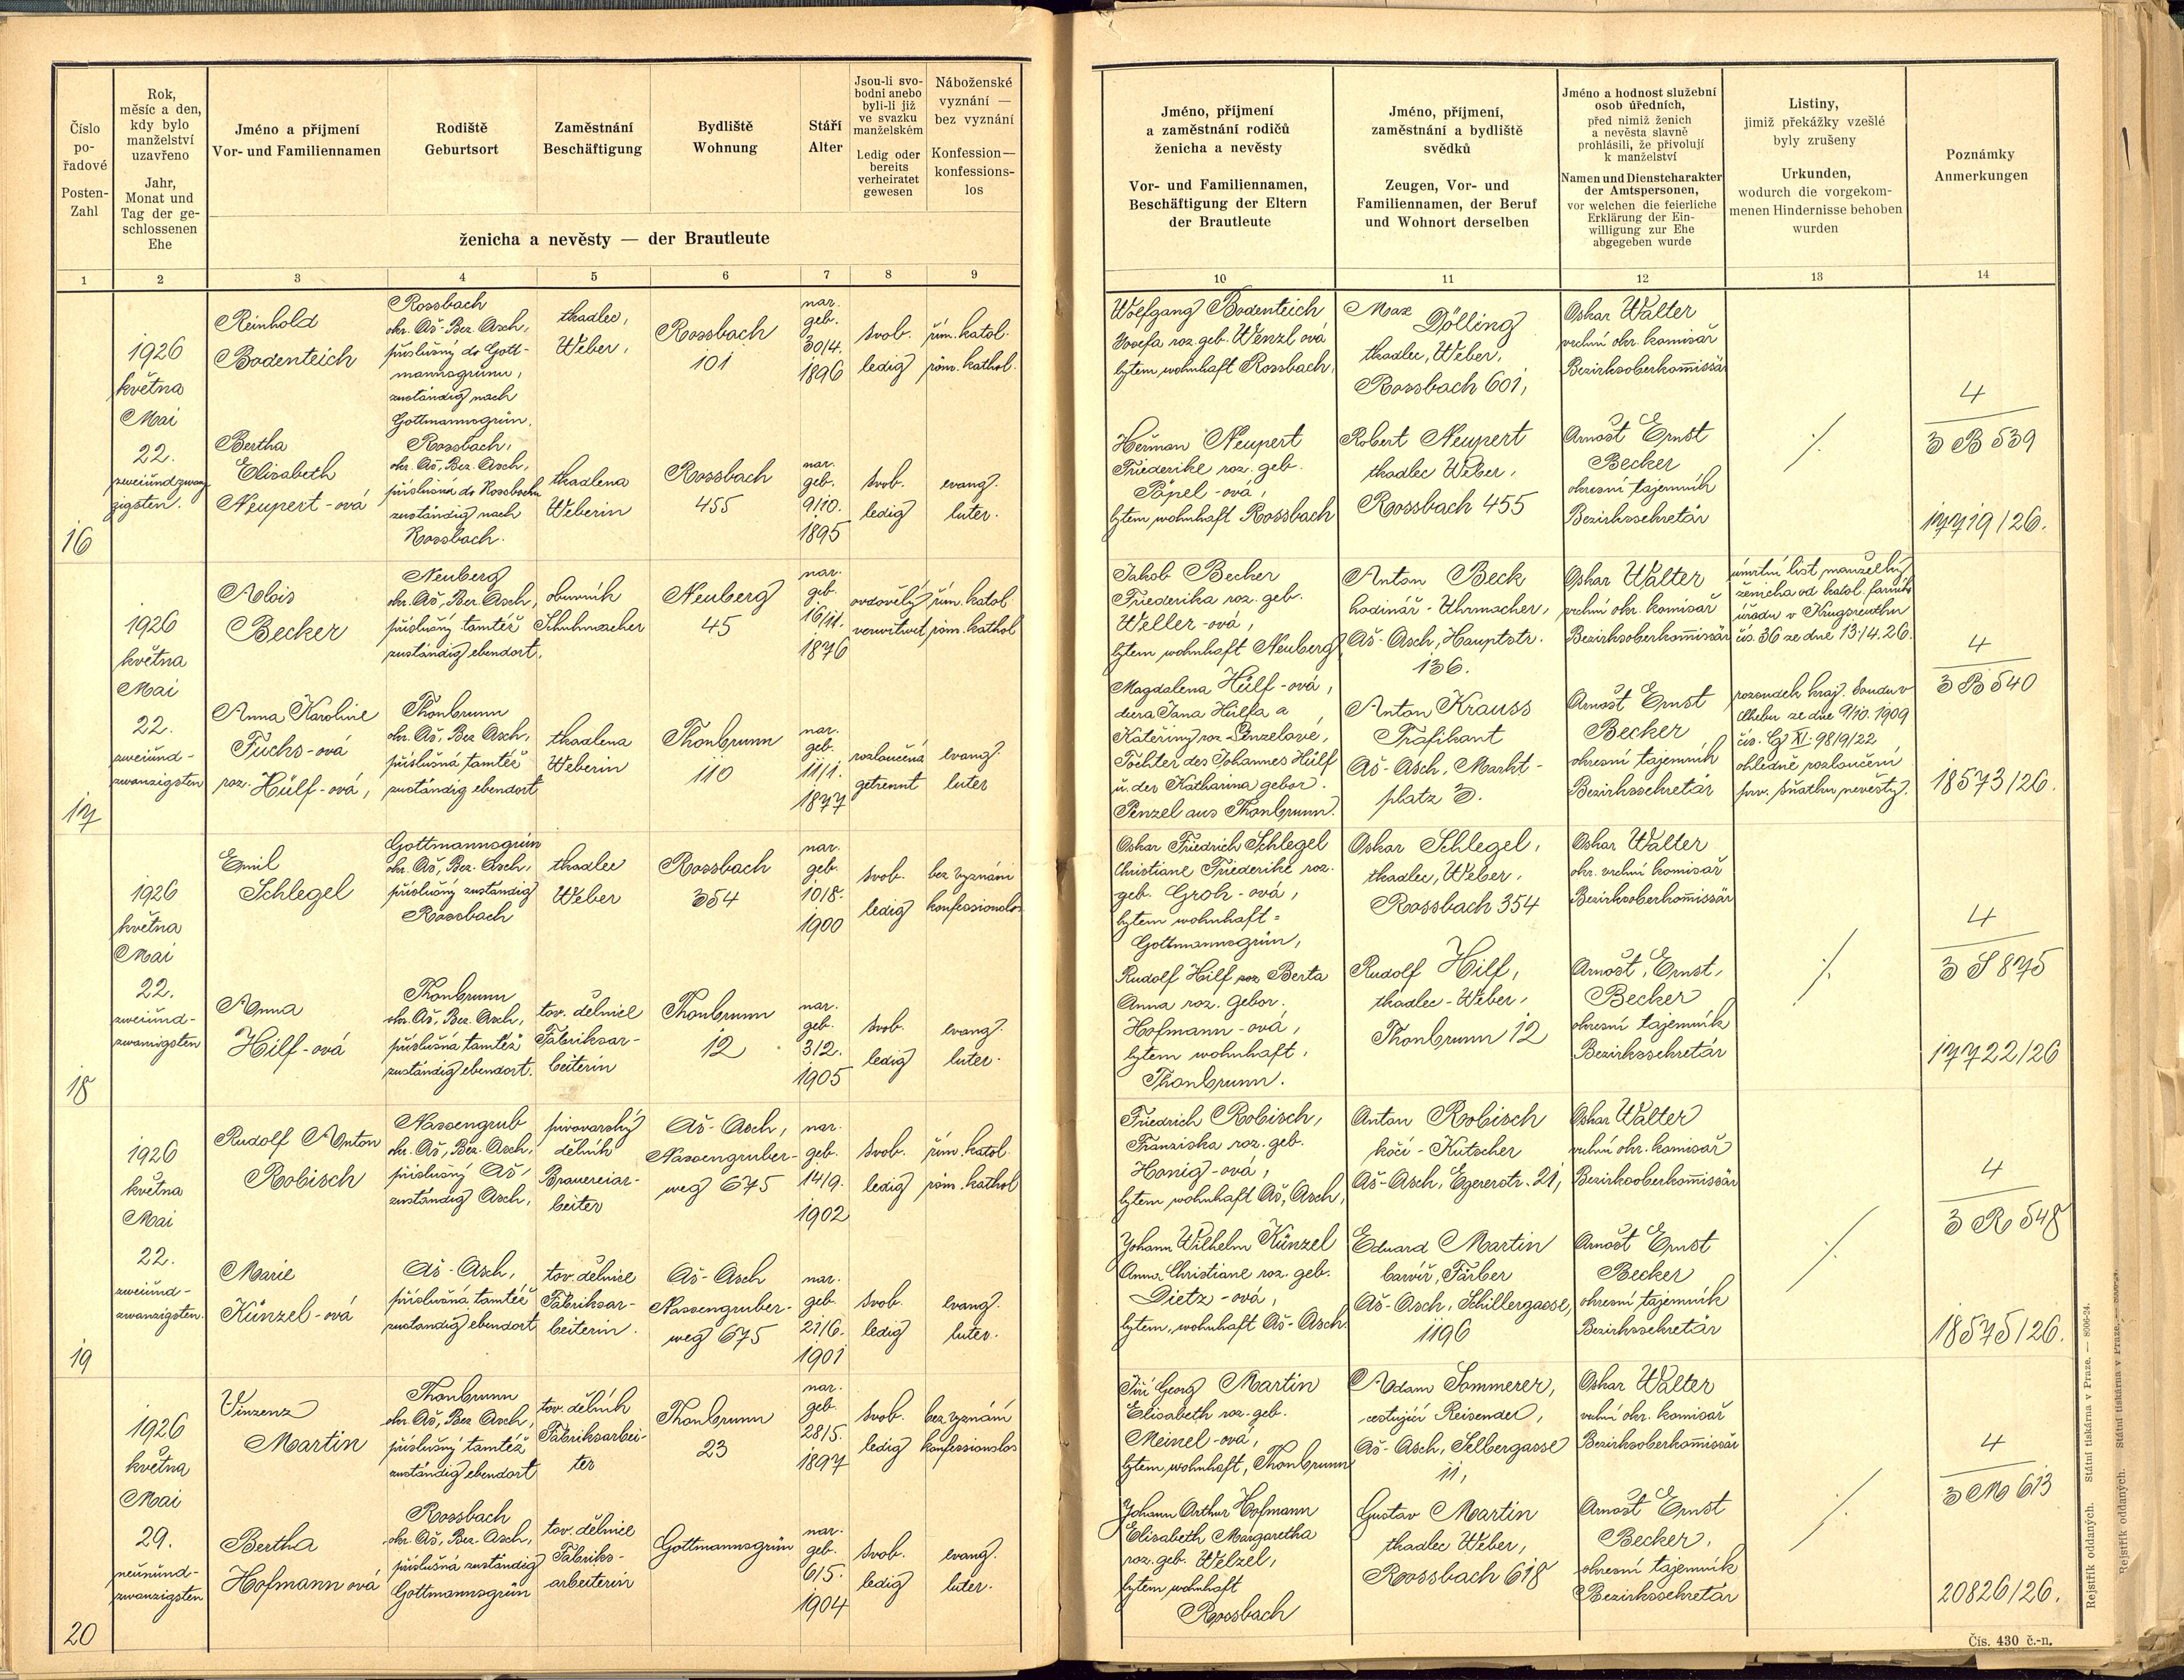 Číslo
po-
řadové
Posten-
Zahl
Rok,
měsíc a den,
kdy bylo
manželství
uzavřeno
Jahr,
Monat und
Tag der ge-
schlossenen
Ehe
Jméno a příjmení
Vor- und Familiennamen
Rodiště
Geburtsort
Zaměstnání
Beschäftigung
Bydliště
Wohnung
Stáří
Alter
Jsou-li svo-
bodni anebo
byli-li již
ve svazku
manželském
Ledig oder
bereits
verheiratet
gewesen
Náboženské
vyznání —
bez vyznání
Konfession—
konfessions-
los
ženicha a nevěsty — der Brautleute
1 2 3 4 5 6 7 8 9
1926
května
Mai
22.
zweiundzwan
zigsten.
16
Reinhold
Bodenteich
Rossbach
okr. Aš-Bez. Asch,
příslušný do Gott-
mannsgrunu,
zuständig nach
Gottmannsgrün.
tkadlec,
Weber,
Rossbach
101
nar.
geb.
30/4.
1896
svob.
ledig
řím. katol.
röm. kathol.
Bertha
Elisabeth
Neupert-ová
Rossbach,
okr. Aš, Bez. Asch,
příslušná do Rossbachu
zuständig nach
Rossbach.
tkadlena
Weberin
Rossbach
455
nar.
geb.
9/10.
1895
svob.
ledig
evang.
luter.
1926
května
Mai
22.
zweiund-
zwanzigsten
17
Alois
Becker
Neuberg
okr. Aš, Bez. Asch,
příslušný tamtéž
zuständig ebendort.
obuvník
Schuhmacher
Neuberg
45
nar.
geb.
16/11.
1876
ovdovělý
verwitwet
řím. katol
röm. kathol
Anna Karoline
Fuchs-ová
roz. Hülf-ová,
Thonbrunn
okr. Aš, Bez. Asch,
příslušná tamtéž
zuständig ebendort
tkadlena
Weberin
Thonbrunn
110
nar.
geb.
11/1.
1877
rozloučená
getrennt
evang.
luter
1926
května
Mai
22.
zweiund-
zwanzigsten
18
Emil
Schlegel
Gottmannsgrün
okr. Aš, Bez. Asch,
příslušný zuständig
Rossbach
tkadlec
Weber
Rossbach
354
nar.
geb.
10/8.
1900
svob.
ledig
bez vyznání
konfessionslos
Anna
Hilf-ová
Thonbrunn
okr. Aš, Bez. Asch,
příslušna tamtéž
zuständig ebendort.
tov. dělnice
Fabriksar-
beiterin
Thonbrunn
12
nar.
geb.
3/2.
1905
svob.
ledig
evang.
luter.
1926
května
Mai
22.
zweiund-
zwanzigsten.
19
Rudolf Anton
Robisch
Nassengrub
okr. Aš, Bez. Asch,
příslušný Aš,
zuständig Asch,
pivovarský
dělník
Brauereiar-
beiter
Aš-Asch,
Nassengruber-
weg 675
nar.
geb.
14/9.
1902
svob.
ledig
řím. katol.
röm. kathol
Marie
Künzel-ová
Aš-Asch,
příslušná tamtéž
zuständig ebendort
tov. dělnice
Fabriksar-
beiterin.
Aš-Asch
Nassengruber-
weg 675
nar.
geb.
21/6.
1901
svob.
ledig
evang.
luter.
1926
května
Mai
29.
neunund-
zwanzigsten
20
Vinzenz
Martin
Thonbrunn
okr. Aš, Bez. Asch,
příslušný tamtéž
zuständig ebendort
tov. dělník
Fabriksarbei-
ter
Thonbrunn
23
nar.
geb.
28/5.
1897
svob.
ledig
bez vyznání
konfessionslos
Bertha
Hofmann ová
Rossbach
okr. Aš, Bez. Asch,
příslušná zuständig
Gottmannsgrün
tov. dělnice
Fabriks-
arbeiterin
Gottmannsgrün
nar.
geb.
6/5.
1904
svob.
ledig
evang.
luter.
Jméno, příjmení
a zaměstnání rodičů
ženicha a nevěsty
Vor- und Familiennamen,
Beschäftigung der Eltern
der Brautleute
Jméno, příjmení,
zaměstnání a bydliště
svědků
Zeugen, Vor- und
Familiennamen, der Beruf
und Wohnort derselben
Jméno a hodnost služební
osob úředních,
před nimiž ženich
a nevěsta slavně
prohlásili, že přivolují
k manželství
Namen und Dienstcharakter
der Amtspersonen,
vor welchen die feierliche
Erklärung der Ein-
willigung zur Ehe
abgegeben wurde
Listiny,
jimiž překážky vzešlé
byly zrušeny
Urkunden,
wodurch die vorgekom-
menen Hindernisse behoben
wurden
Poznámky
Anmerkungen
10 11 12 13 14
Wolfgang Bodenteich
Josefa roz. geb. Wenzl ová
bytem, wohnhaft Rossbach,
Max
Dölling
tkadlec, Weber,
Rossbach 601,
Oskar Walter
vrchní okr. komisař
Bezirksoberkommissär
Heřman Neupert
Friederike roz. geb.
Päpel-ová,
bytem wohnhaft Rossbach
Robert Neupert
tkadlec Weber,
Rossbach 455
Arnošt Ernst
Becker
okresní tajemník
Bezirkssekretär
./.
4
3 B 539
17719/26.
Jakob Becher
Friederika roz. geb.
Weller-ová,
bytem wohnhaft Neuberg
Anton Beck
hodinář-Uhrmacher,
Aš-Asch, Hauptstr.
136.
Oskar Walter
vrchní okr. komisař
Bezirksoberkommissär
úmrtní list manželky
ženicha od katol. farního
úřadu v Krugsreuthu
čís. 36 ze dne 13.14.26.
Magdalena Hülf-ová,
dcera Jana Hülfa a
Kateřiny roz. Penzelové,
Tochter des Johannes Hülf
u. der Katharina gebor.
Penzel aus Thonbrunn.
Anton Krauss
Trafikant
Aš-Asch, Markt-
platz 3.
Arnošt Ernst
Becker
okresní tajemník
Bezirkssekretär
rozsudek kraj. soudu v
Chebu ze dne 9/10. 1909
čís. Cg XI. 98/9/22
ohledně rozloučení
prv. sňatku nevěsty.
4
3 B 540
18573/26.
Oskar Friedrich Schlegel
Christiane Friederike roz.
geb. Groh-ová,
bytem wohnhaft =
Gottmannsgrün,
Oskar Schlegel,
tkadlec, Weber,
Rossbach 354
Oskar Walter
okr. vrchní komisař
Bezirksoberkommissär
Rudolf Hilf Berta
Anna roz. Gebor.
Hofmann-ová,
bytem wohnhaft,
Thonbrunn.
Rudolf Hilf,
tkadlec-Weber,
Thonbrunn 12
Arnošt, Ernst,
Becker
okresní tajemník
Bezirkssekretár
./.
4
3 S 875
17722/26
Friedrich Robisch,
Franziska roz. geb.
Honig-ová,
bytem wohnhaft Aš, Asch,
Anton Robisch
kočí-Kutscher
Aš-Asch, Egererstr. 21,
Oskar Walter
vrchní okr. komisař
Bezirksoberkommissär
Johann Wilhelm Künzel
Anna Christiane roz. geb.
Dietz-ová,
bytem, wohnhaft Aš-Asch.
Eduard Martin
barvíř, Färber
Aš-Asch, Schillergasse,
1196
Arnošt Ernst
Becker
okresní tajemník
Bezirkssekretár
./.
4
3 R 548
18575/26.
Jiří Georg Martin
Elisabeth roz. geb.
Meinel-ová,
bytem, wohnhaft, Thonbrunn
Adam Sommerer,
cestující Reisender,
Aš-Asch, Selbergasse
11,
Oskar Walter
vrchní okr. komisař
Bezirksoberkommissär
Johann Arthur Hofmann
Elisabeth Margaretha
roz. geb. Welzel,
bytem wohnhaft
Rossbach
Gustav Martin
tkadlec Weber,
Rossbach 618
Arnošt Ernst
Becker,
okresní tajemník
Bezirkssekretár
./.
4
3 M 613
20826/26.
Rejstřík oddaných. Státní tiskárna v Praze. — 8006-24.
Rejstřík oddaných. Státní tiskárna v Praze.
Čís. 430 č.-n.